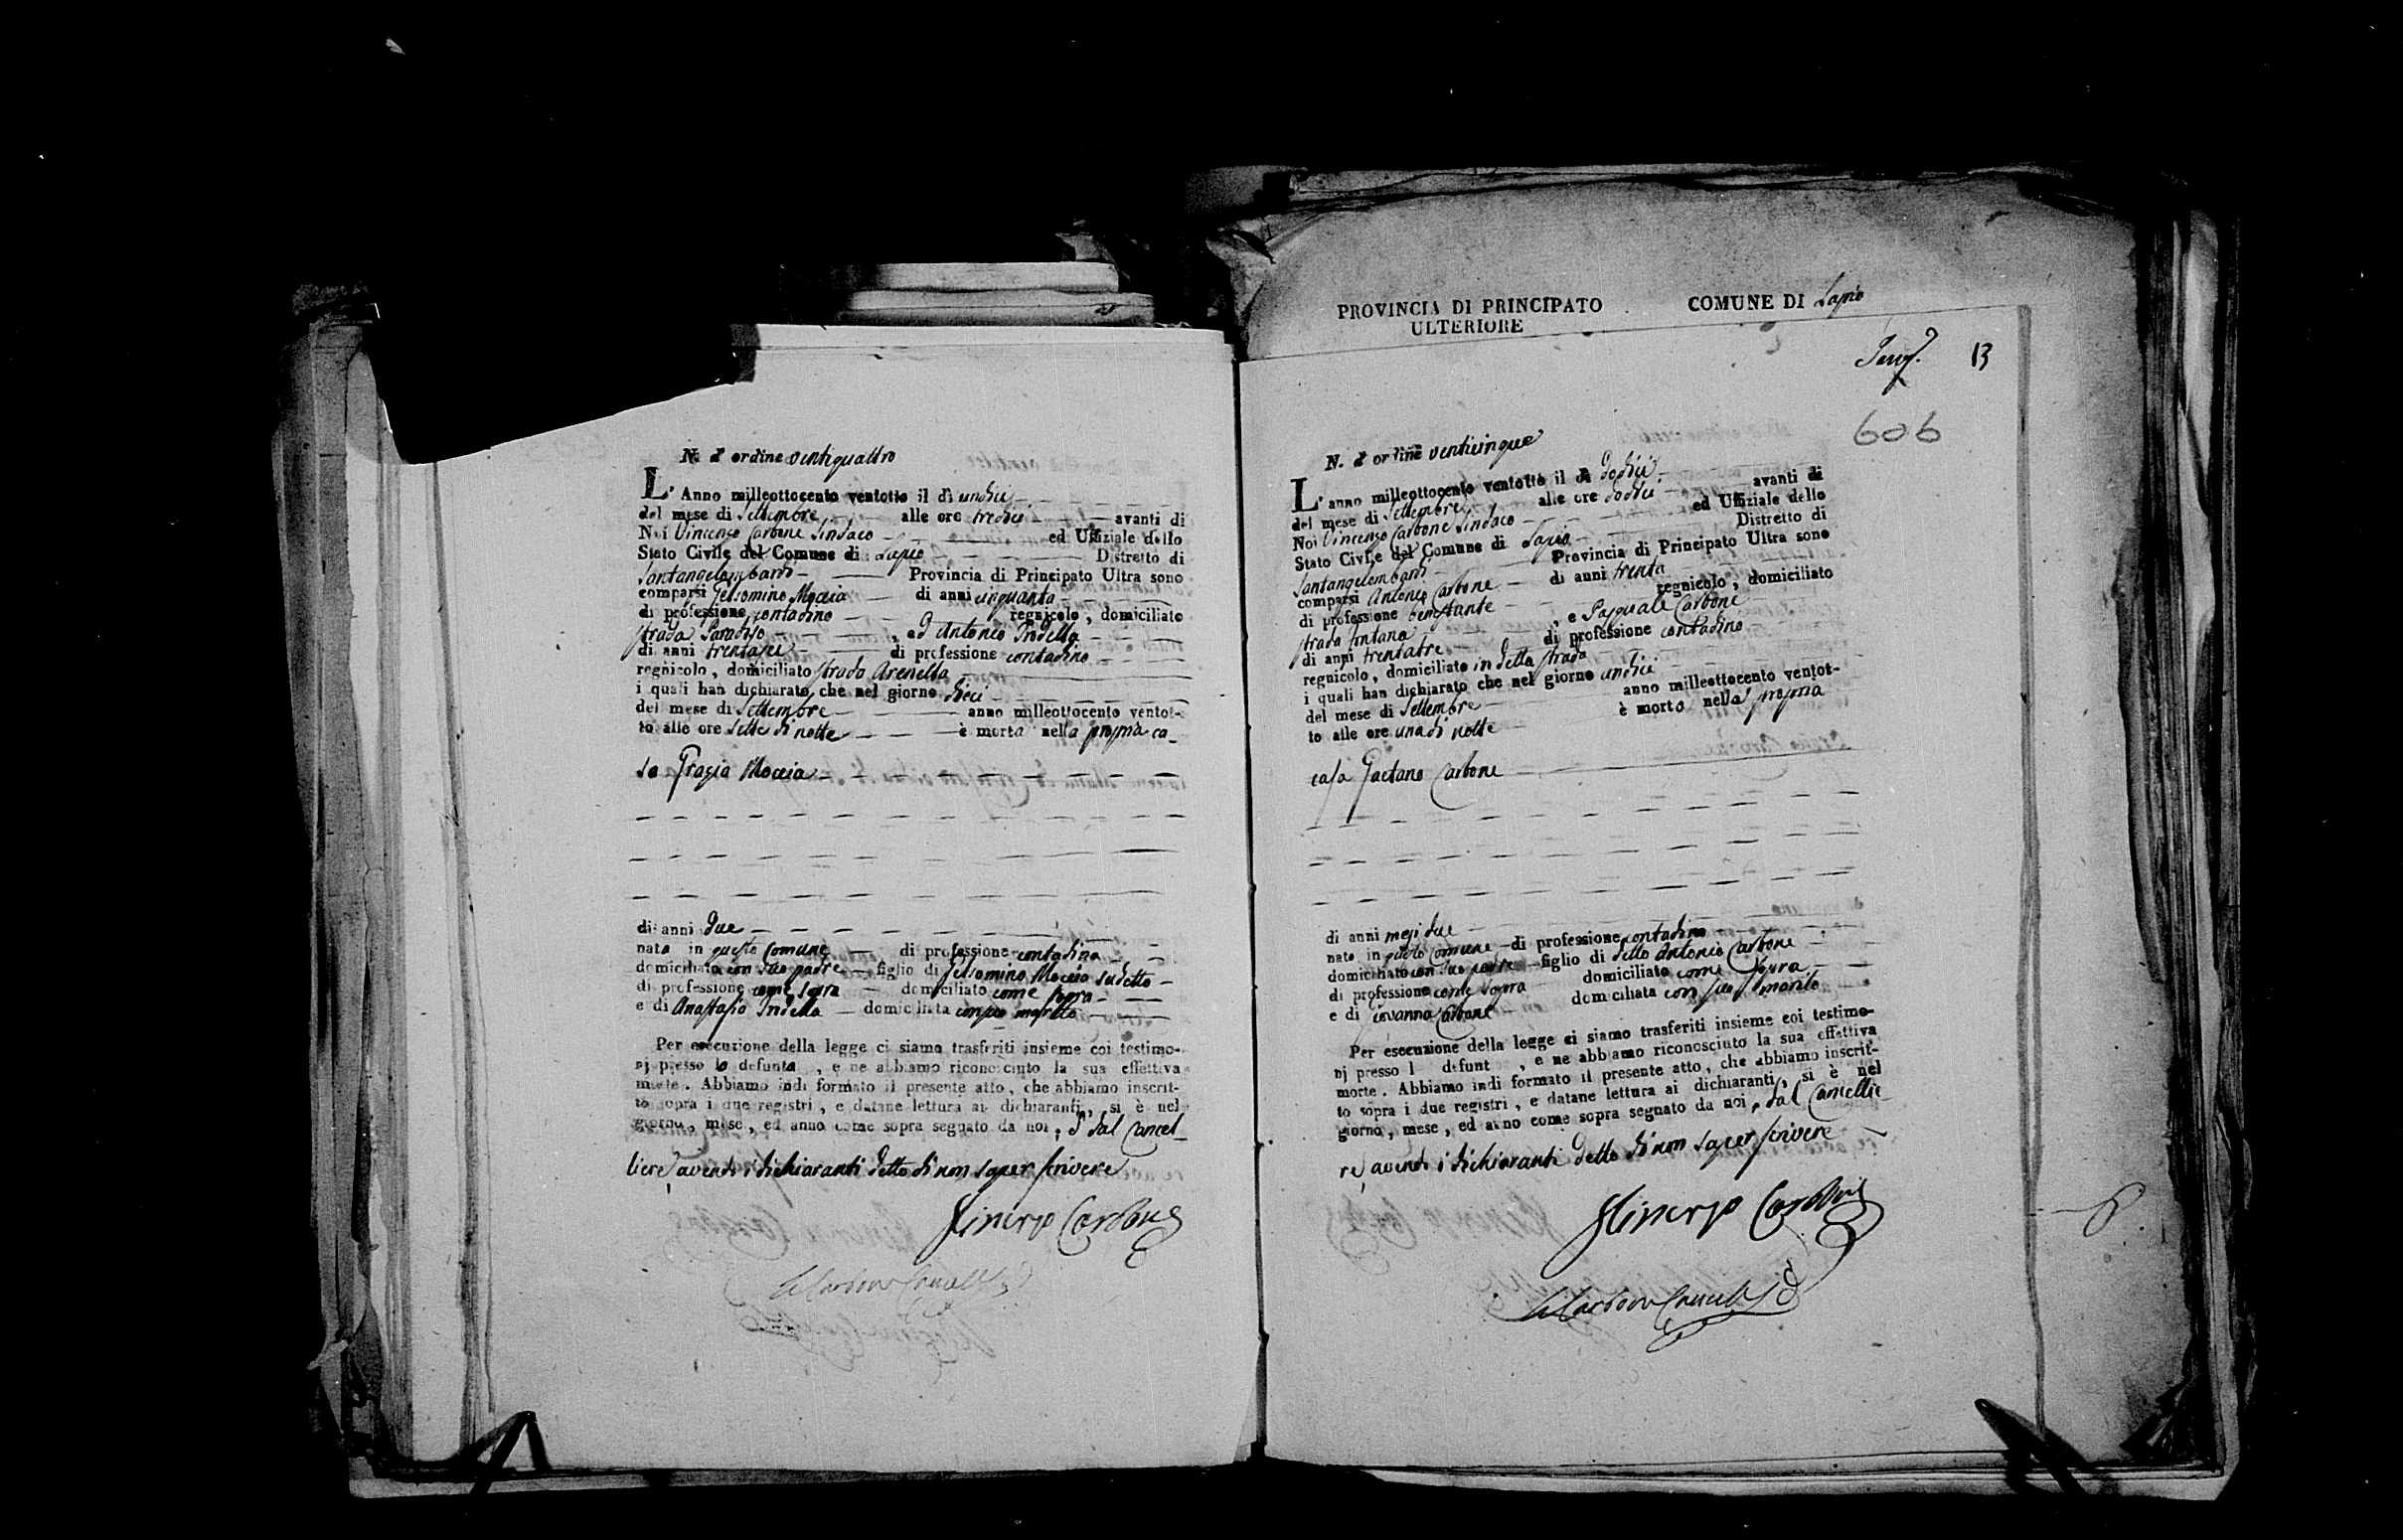 N. d' ordine ventiquattro
L' Anno milleottocento ventotto il dì undici
del mese di Settembre alle ore tredici avanti di
Noi Vincenzo Carbone Sindaco ed Uffiziale dello
Stato Civile del Comune di Lapio Distretto di
Santangelombardi Provincia di Principato Ultra sono
comparsi Gelsomino Moccia di anni cinquanta
di professione contadino regnicolo, domiciliato
strada Paradiso, ed Antonio Indella
di anni trentasei di professione contadino
regnicolo, domiciliato strada Arenella
i quali han dichiarato che nel giorno dieci
del mese di Settembre anno milleottocento ventot-
to alle ore sette di notte è morta nella propria ca-
sa Grazia Moccia
di anni due
nata in questo Comune di professione contadina
domiciliata con suo padre figlio di Gelsomino Moccia sudetto
di professione come sopra domiciliato come sopra
e di Anastasia Indella domiciliata con suo marito
Per esecuzione della legge ci siamo trasferiti insieme coi testimo-
nj presso la defunta, e ne abbiamo riconosciuto la sua effettiva
morte. Abbiamo indi formato il presente atto, che abbiamo inscrit-
to sopra i due registri, e datane lettura ai dichiaranti, si è nel
giorno, mese, ed anno come sopra segnato da noi, e dal Cancel-
liere, avendo i dichiaranti detto di non saper scrivere
Vincenzo Carbone
PROVINCIA DI PRINCIPATO COMUNE DI Lapio
ULTERIORE
13
606
N. d' ordine venticinque
L' anno milleottocento ventotto il dì dodici avanti di
del mese di Settembre alle ore dodici ed Uffiziale dello
Noi Vincenzo Carbone Sindaco Distretto di
Stato Civile del Comune di Lapio Provincia di Principato Ultra sono
Santangelombardi di anni trenta
comparsi Antonio Carbone regnicolo, domiciliato
di professione benestante, e Pasquale Carbone
strada fontana di professione contadino
di anni trentatre
regnicolo, domiciliato in detta strada
i quali han dichiarato che nel giorno undici
del mese di Settembre anno milleottocento ventot-
to alle ore una di notte è morto nella propria
casa Gaetano Carbone
di anni mesi due
nato in questo Comune di professione contadino
domiciliato con suo padre figlio di detto Antonio Carbone
di professione come sopra domiciliato come sopra
e di Giovanna Carbone domiciliata con suo marito
Per esecuzione della legge ci siamo trasferiti insieme coi testimo-
nj presso l defunt , e ne abbiamo riconosciuto la sua effettiva
morte. Abbiamo indi formato il presente atto, che abbiamo inscrit-
to sopra i due registri, e datane lettura ai dichiaranti, si è nel
giorno, mese, ed anno come sopra segnato da noi, e dal Cancellie
re, avendo i dichiaranti detto di non saper scrivere
Vincenzo Carbone